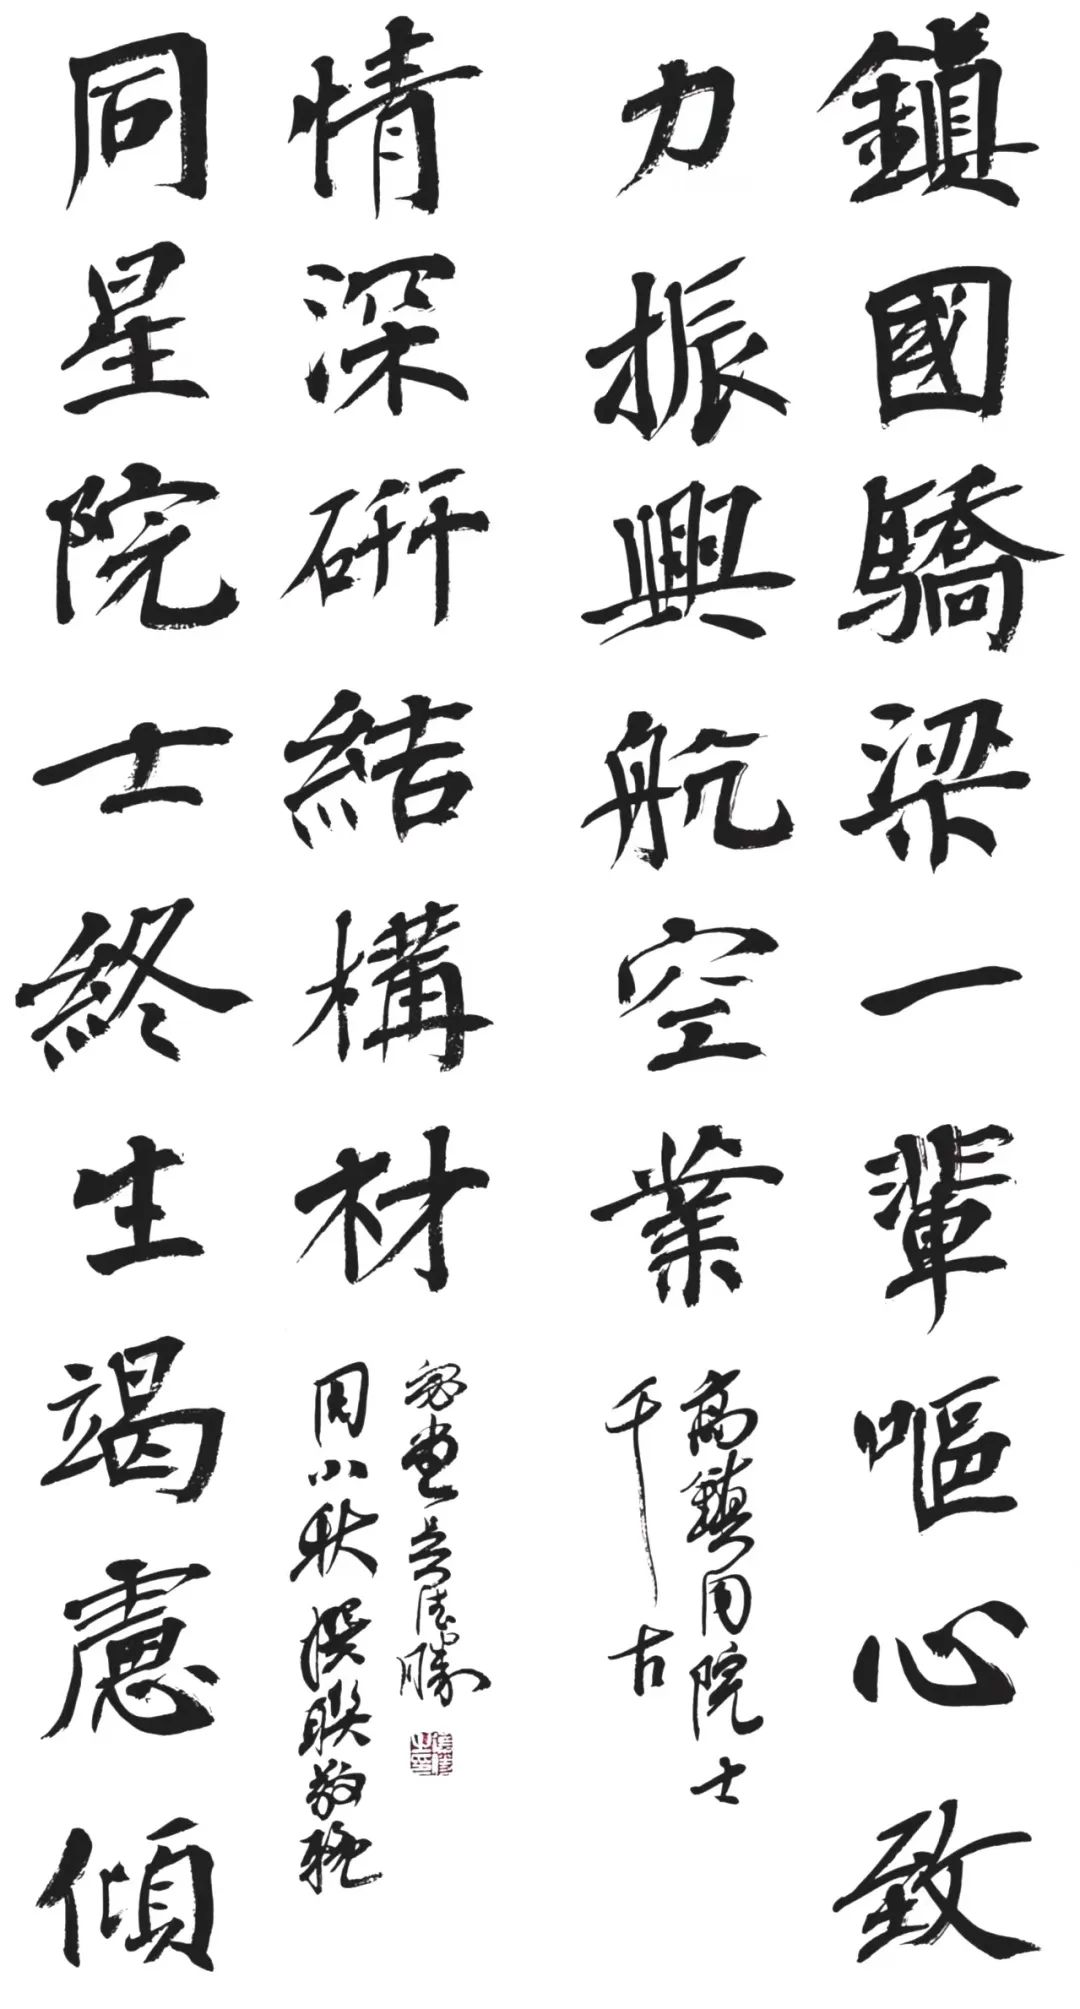 鎮國驕梁一輩嘔心致
力振興航空業
高鎮同院士
千古
同星院士終生竭慮傾
情深研結構材
周小秋撰聯敬輓
吳德勝